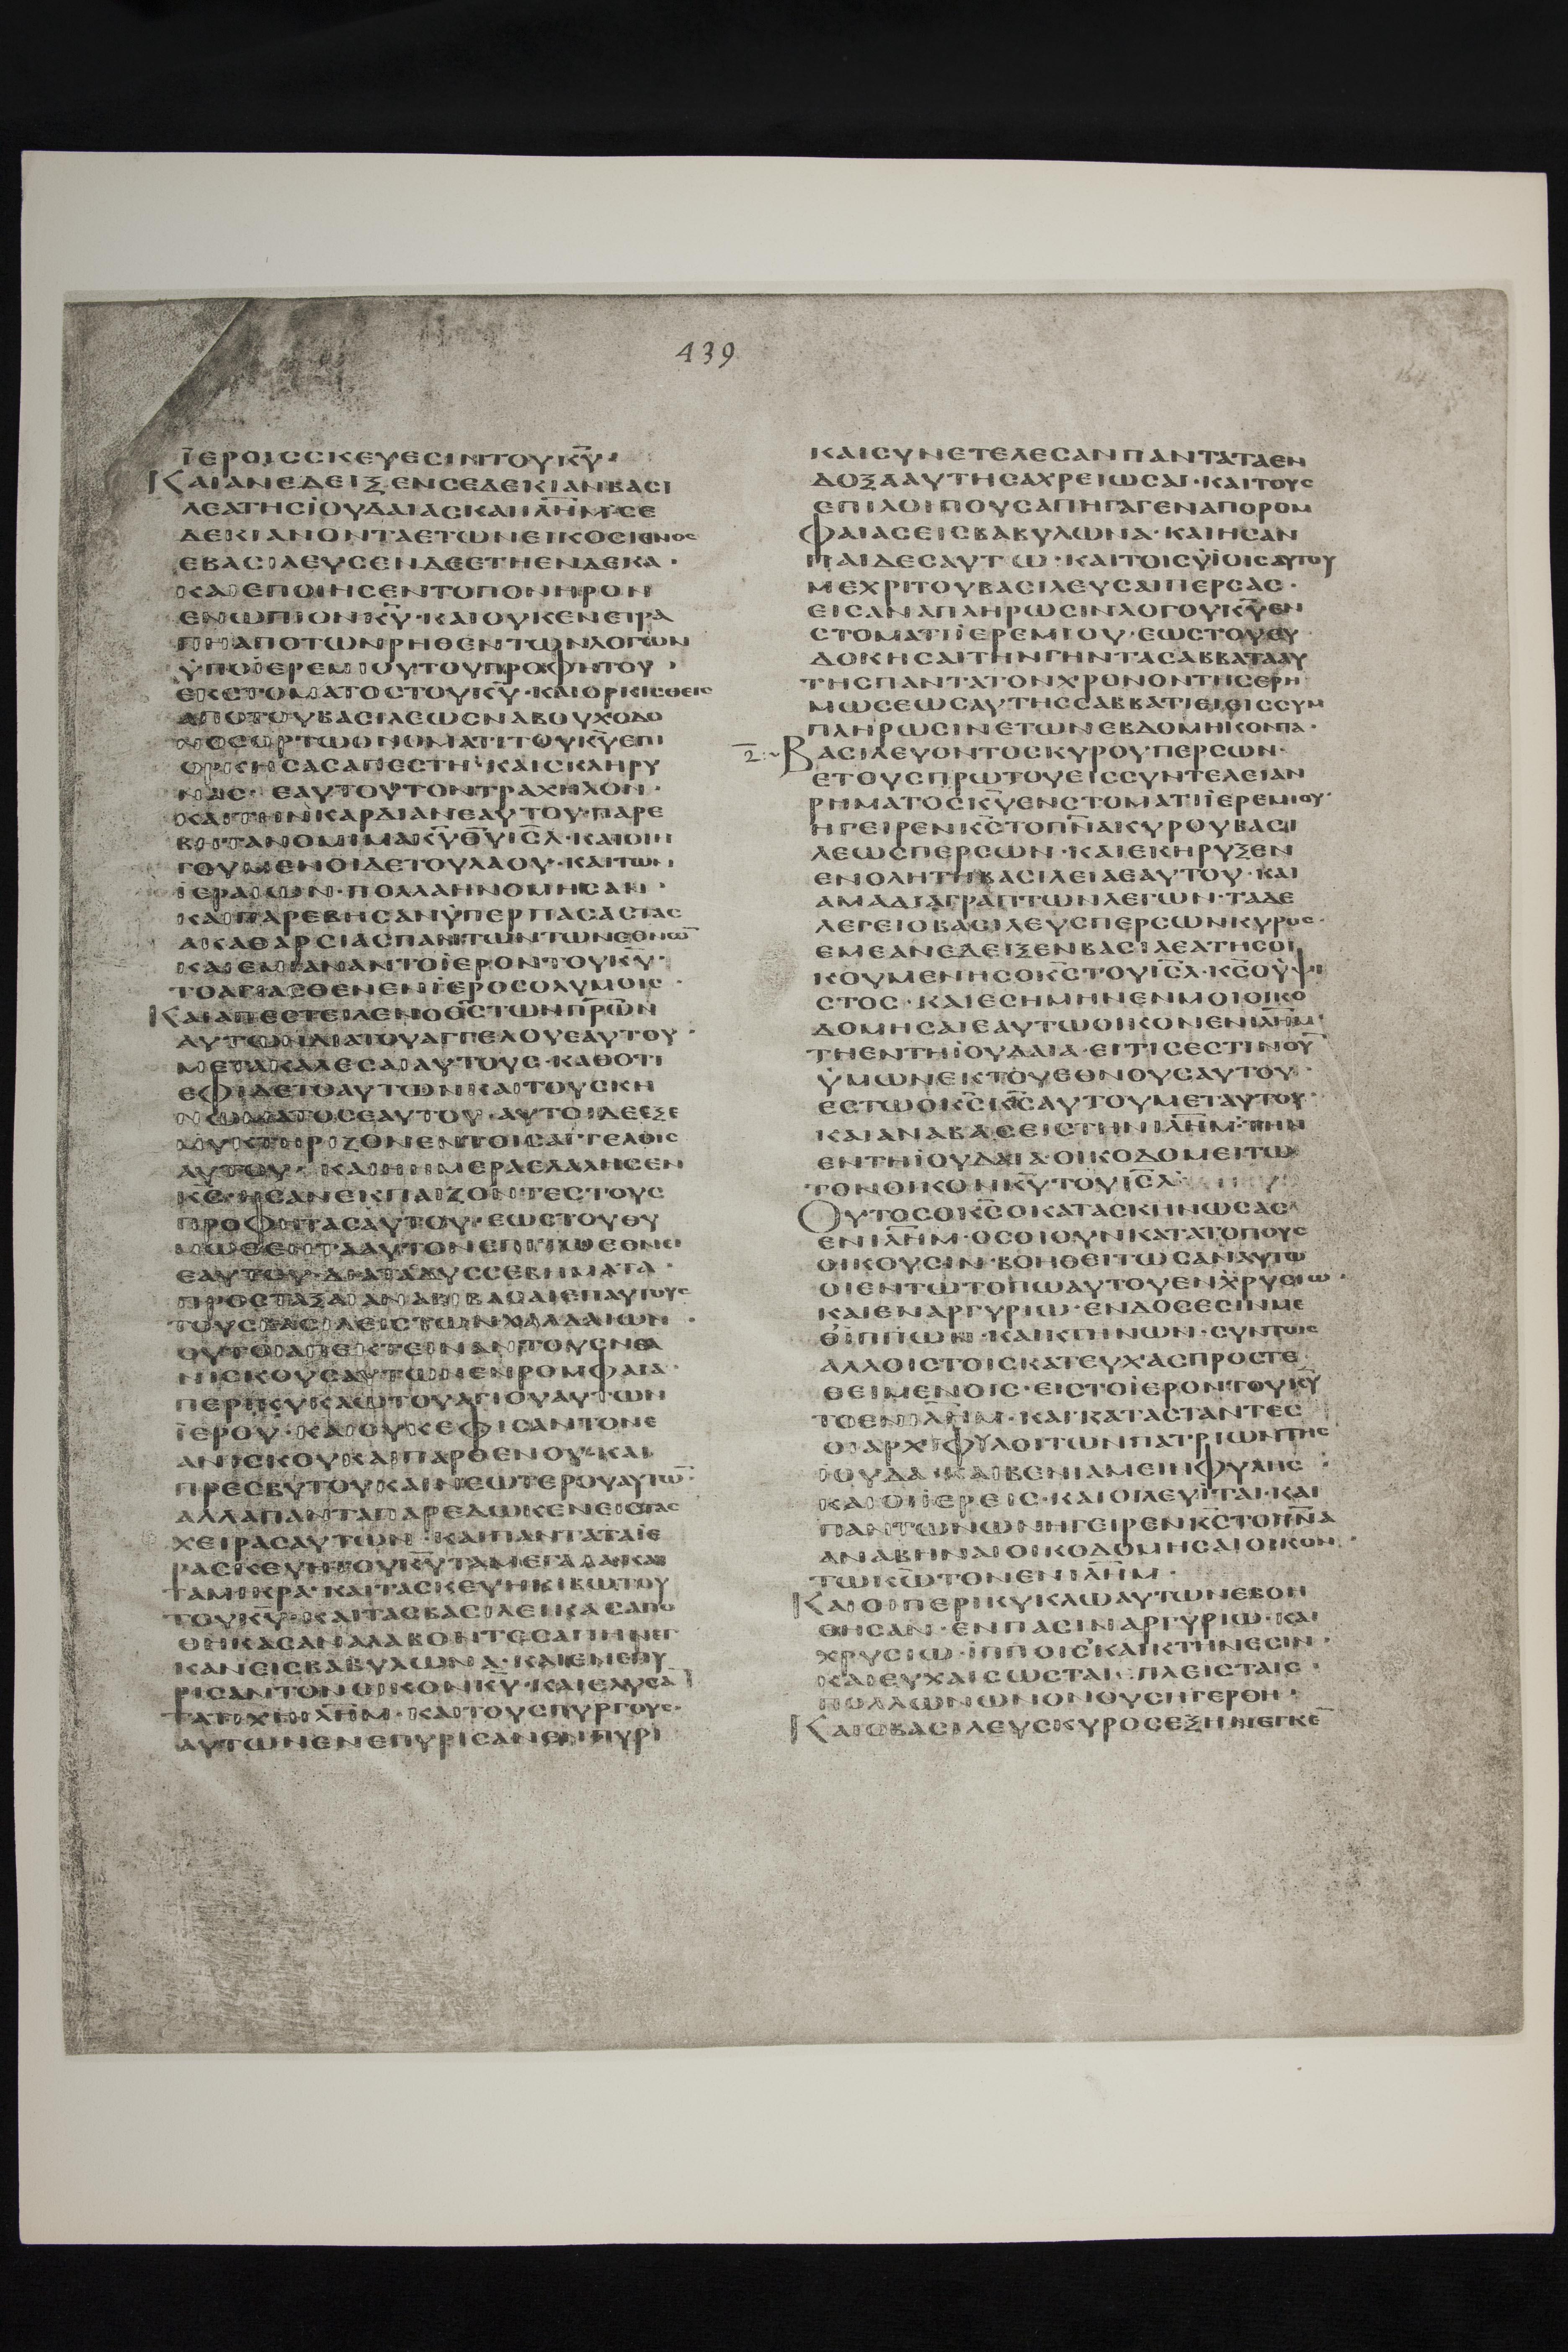 439
ΪΕΡΟΙΣΣΚΕΥΕΣΙΝΤΟΥΚ̅Υ̅·
ΚΑΙΑΝΕΔΕΙΞΕΝΣΕΔΕΚΙΑΝΒΑΣΙ
ΛΕΑΤΗΣΪΟΥΔΑΙΑΣΚΑΙΙΛ̅Η̅Μ̅·ΣΕ
ΔΕΚΙΑΝΟΝΤΑΕΤΩΝΕΙΚΟΣΙΕΝΟΣ
ΕΒΑΣΙΛΕΥΣΕΝΔΕΕΤΗΕΝΔΕΚΑ·
ΚΑΙΕΠΟΙΗΣΕΝΤΟΠΟΝΗΡΟΝ
ΕΝΩΠΙΟΝΚ̅Υ̅·ΚΑΙΟΥΚΕΝΕΤΡΑ
ΠΗΑΠΟΤΩΝΡΗΘΕΝΤΩΝΛΟΓΩΝ
ΫΠΟΪΕΡΕΜΙΟΥΤΟΥΠΡΟΦΗΤΟΥ·
ΕΚΣΤΟΜΑΤΟΣΤΟΥΚ̅Υ̅·ΚΑΙΟΡΚΙΣΘΕΙΣ
ΑΠΟΤΟΥΒΑΣΙΛΕΩΣΝΑΒΟΥΧΟΔΟ
ΝΟΣΟΡΤΩΟΝΟΜΑΤΙΤΟΥΚ̅Υ̅ΕΠΙ
ΟΡΚΗΣΑΣΑΠΕΣΤΗ·ΚΑΙΣΚΛΗΡΥ
ΝΑΣ·ΕΑΥΤΟΥΤΟΝΤΡΑΧΗΛΟΝ·
ΚΑΙΤΗΝΚΑΡΔΙΑΝΕΑΥΤΟΥ·ΠΑΡΕ
ΒΗΤΑΝΟΜΙΜΑΚ̅Υ̅Θ̅Υ̅Ι̅Σ̅Λ̅·ΚΑΙΟΙΗ
ΓΟΥΜΕΝΟΙΔΕΤΟΥΛΑΟΥ·ΚΑΙΤΩΝ
ΪΕΡΑΙΩΝ·ΠΟΛΛΑΗΝΟΜΗΣΑΝ·
ΚΑΙΠΑΡΕΒΗΣΑΝΫΠΕΡΠΑΣΑΣΤΑΣ
ΑΚΑΘΑΡΣΙΑΣΠΑΝΤΩΝΤΩΝΕΘΝΩ̅
ΚΑΙΕΜΙΑΝΑΝΤΟΪΕΡΟΝΤΟΥΚ̅Υ̅·
ΤΟΑΓΙΑΣΘΕΝΕΝΪΕΡΟΣΟΛΥΜΟΙΣ·
ΚΑΙΑΠΕΣΤΕΙΛΕΝΟΘ̅Σ̅ΤΩΝΠ̅Ρ̅Ω̅Ν̅
ΑΥΤΩΝΔΙΑΤΟΥΑΓΓΕΛΟΥΕΑΥΤΟΥ·
ΜΕΤΑΚΑΛΕΣΑΙΑΥΤΟΥΣ·ΚΑΘΟΤΙ
ΕΦΙΔΕΤΟΑΥΤΩΝΚΑΙΤΟΥΣΚΗ
ΝΩΜΑΤΟΣΕΑΥΤΟΥ·ΑΥΤΟΙΔΕΕΞΕ
ΜΥΚΤΗΡΙΖΟΝΕΝΤΟΙΣΑΓΓΕΛΟΙΣ
ΑΥΤΟΥ·ΚΑΙΗΗΜΕΡΑΕΛΑΛΗΣΕΝ
Κ̅Σ̅·ΗΣΑΝΕΚΠΑΙΖΟΝΤΕΣΤΟΥΣ
ΠΡΟΦΗΤΑΣΑΥΤΟΥ·ΕΩΣΤΟΥΘΥ
ΜΩΘΕΝΤΑΑΥΤΟΝΕΠΙΤΩΕΘΝΕΙ
ΕΑΥΤΟΥ·ΔΙΑΤΑΔΥΣΣΕΒΗΜΑΤΑ·
ΠΡΟΣΤΑΞΑΙΑΝΑΒΙΒΑΣΑΙΕΠΑΥΤΟΥΣ
ΤΟΥΣΒΑΣΙΛΕΙΣΤΩΝΧΑΛΔΑΙΩΝ·
ΟΥΤΟΙΑΠΕΚΤΕΙΝΑΝΤΟΥΣΝΕΑ
ΝΙΣΚΟΥΣΑΥΤΩΝΕΝΡΟΜΦΑΙΑ·
ΠΕΡΙΚΥΚΛΩΤΟΥΑΓΙΟΥΑΥΤΩΝ
ΪΕΡΟΥ·ΚΑΙΟΥΚΕΦΙΣΑΝΤΟΝΕ
ΑΝΙΣΚΟΥΚΑΙΠΑΡΘΕΝΟΥ·ΚΑΙ
ΠΡΕΣΒΥΤΟΥΚΑΙΝΕΩΤΕΡΟΥΑΥΤΩ̅·
ΑΛΛΑΠΑΝΤΑΠΑΡΕΔΩΚΕΝΕΙΣΤΑΣ
ΧΕΙΡΑΣΑΥΤΩΝ·ΚΑΙΠΑΝΤΑΤΑΪΕ
ΡΑΣΚΕΥΗΤΟΥΚ̅Υ̅ΤΑΜΕΓΑΛΑΚΑΙ
ΤΑΜΙΚΡΑ·ΚΑΙΤΑΣΚΕΥΗΚΙΒΩΤΟΥ
ΤΟΥΚ̅Υ̅·ΚΑΙΤΑΣΒΑΣΙΛΕΙΚΑΣΑΠΟ
ΘΗΚΑΣΑΝΑΛΑΒΟΝΤΕΣΑΠΗΝΕΓ
ΚΑΝΕΙΣΒΑΒΥΛΩΝΑ·ΚΑΙΕΝΕΠΥ
ΡΙΣΑΝΤΟΝΟΙΚΟΝΚ̅Υ̅·ΚΑΙΕΛΥΣΑ̅
ΤΑΤΙΧΗΙΛ̅Η̅Μ̅·ΚΑΙΤΟΥΣΠΥΡΓΟΥΣ·
ΑΥΤΩΝΕΝΕΠΥΡΙΣΑΝΕΝΠΥΡΙ
ΚΑΙΣΥΝΕΤΕΛΕΣΑΝΠΑΝΤΑΤΑΕΝ
ΔΟΞΑΑΥΤΗΣΑΧΡΕΙΩΣΑΙ·ΚΑΙΤΟΥΣ
ΕΠΙΛΟΙΠΟΥΣΑΠΗΓΑΓΕΝΑΠΟΡΟΜ
ΦΑΙΑΣΕΙΣΒΑΒΥΛΩΝΑ·ΚΑΙΗΣΑΝ
ΠΑΙΔΕΣΑΥΤΩ·ΚΑΙΤΟΙΣΫΪΟΙΣΑΥΤΟΥ
ΜΕΧΡΙΤΟΥΒΑΣΙΛΕΥΣΑΙΠΕΡΣΑΣ·
ΕΙΣΑΝΑΠΛΗΡΩΣΙΝΛΟΓΟΥΚ̅Υ̅ΕΝ
ΣΤΟΜΑΤΙΪΕΡΕΜΙΟΥ·ΕΩΣΤΟΥΕΥ
ΔΟΚΗΣΑΙΤΗΝΓΗΝΤΑΣΑΒΒΑΤΑΑΥ
ΤΗΣΠΑΝΤΑΤΟΝΧΡΟΝΟΝΤΗΣΕΡΗ
ΜΩΣΕΩΣΑΥΤΗΣΣΑΒΒΑΤΙΕΙΘΙΣΣΥΜ
ΠΛΗΡΩΣΙΝΕΤΩΝΕΒΔΟΜΗΚΟΝΤΑ·
2̅:~ΒΑΣΙΛΕΥΟΝΤΟΣΚΥΡΟΥΠΕΡΣΩΝ·
ΕΤΟΥΣΠΡΩΤΟΥΕΙΣΣΥΝΤΕΛΕΙΑΝ
ΡΗΜΑΤΟΣΚ̅Υ̅ΕΝΣΤΟΜΑΤΙΪΕΡΕΜΙΟΥ·
ΗΓΕΙΡΕΝΚ̅Σ̅ΤΟΠ̅Ν̅Α̅ΚΥΡΟΥΒΑΣΙ
ΛΕΩΣΠΕΡΣΩΝ·ΚΑΙΕΚΗΡΥΞΕΝ
ΕΝΟΛΗΤΗΒΑΣΙΛΕΙΑΕΑΥΤΟΥ·ΚΑΙ
ΑΜΑΔΙΑΓΡΑΠΤΩΝΛΕΓΩΝ·ΤΑΔΕ
ΛΕΓΕΙΟΒΑΣΙΛΕΥΣΠΕΡΣΩΝΚΥΡΟΣ·
ΕΜΕΑΝΕΔΕΙΞΕΝΒΑΣΙΛΕΑΤΗΣΟΙ
ΚΟΥΜΕΝΗΣΟΚ̅Σ̅ΤΟΥΙ̅Σ̅Λ̅·Κ̅Σ̅ΟΫΨΙ
ΣΤΟΣ·ΚΑΙΕΣΗΜΗΝΕΝΜΟΙΟΙΚΟ
ΔΟΜΗΣΑΙΕΑΥΤΩΟΙΚΟΝΕΝΙΛ̅Η̅Μ̅·
ΤΗΕΝΤΗΪΟΥΔΑΙΑ·ΕΙΤΙΣΕΣΤΙΝΟΥ̅
ΫΜΩΝΕΚΤΟΥΕΘΝΟΥΣΑΥΤΟΥ·
ΕΣΤΩΟΚ̅Σ̅Κ̅Σ̅ΑΥΤΟΥΜΕΤΑΥΤΟΥ·
ΚΑΙΑΝΑΒΑΣΕΙΣΤΗΝΙΛ̅Η̅Μ̅·ΤΗΝ
ΕΝΤΗΪΟΥΔΑΙΑ·ΟΙΚΟΔΟΜΕΙΤΩ
ΤΟΝΟΙΚΟΝΚ̅Υ̅ΤΟΥΙ̅Σ̅Λ̅
ΟΥΤΟΣΟΚ̅Σ̅ΟΚΑΤΑΣΚΗΝΩΣΑΣ
ΕΝΙΛ̅Η̅Μ̅·ΟΣΟΙΟΥΝΚΑΤΑΤΟΠΟΥΣ
ΟΙΚΟΥΣΙΝ·ΒΟΗΘΕΙΤΩΣΑΝΑΥΤΩ
ΟΙΕΝΤΩΤΟΠΩΑΥΤΟΥΕΝΧΡΥΣΙΩ·
ΚΑΙΕΝΑΡΓΥΡΙΩ·ΕΝΔΟΣΕΣΙΝΜΕ
ΘΪΠΠΩΝ·ΚΑΙΚΤΗΝΩΝ·ΣΥΝΤΟΙΣ
ΑΛΛΟΙΣΤΟΙΣΚΑΤΕΥΧΑΣΠΡΟΣΤΕ
ΘΕΙΜΕΝΟΙΣ·ΕΙΣΤΟΪΕΡΟΝΤΟΥΚ̅Υ̅
ΤΟΕΝΙΛ̅Η̅Μ̅·ΚΑΙΚΑΤΑΣΤΑΝΤΕΣ
ΟΙΑΡΧΙΦΥΛΟΙΤΩΝΠΑΤΡΙΩΝΤΗΣ
ΪΟΥΔΑ·ΚΑΙΒΕΝΙΑΜΕΙΝΦΥΛΗΣ·
ΚΑΙΟΙΪΕΡΕΙΣ·ΚΑΙΟΙΛΕΥΙΤΑΙ·ΚΑΙ
ΠΑΝΤΩΝΩΝΗΓΕΙΡΕΝΚ̅Σ̅ΤΟΠ̅Ν̅Α̅
ΑΝΑΒΗΝΑΙΟΙΚΟΔΟΜΗΣΑΙΟΙΚΟΝ·
ΤΩΚ̅Ω̅ΤΟΝΕΝΙΛ̅Η̅Μ̅·
ΚΑΙΟΙΠΕΡΙΚΥΚΛΩΑΥΤΩΝΕΒΟΗ
ΘΗΣΑΝ·ΕΝΠΑΣΙΝΑΡΓΥΡΙΩ·ΚΑΙ
ΧΡΥΣΙΩ·ΪΠΠΟΙΣΚΑΙΚΤΗΝΕΣΙΝ·
ΚΑΙΕΥΧΑΙΣΩΣΤΑΙ·ΠΛΕΙΣΤΑΙΣ·
ΠΟΛΛΩΝΩΝΟΝΟΥΣΗΓΕΡΘΗ·
ΚΑΙΟΒΑΣΙΛΕΥΣΚΥΡΟΣΕΞΗΝΕΓΚΕ̅